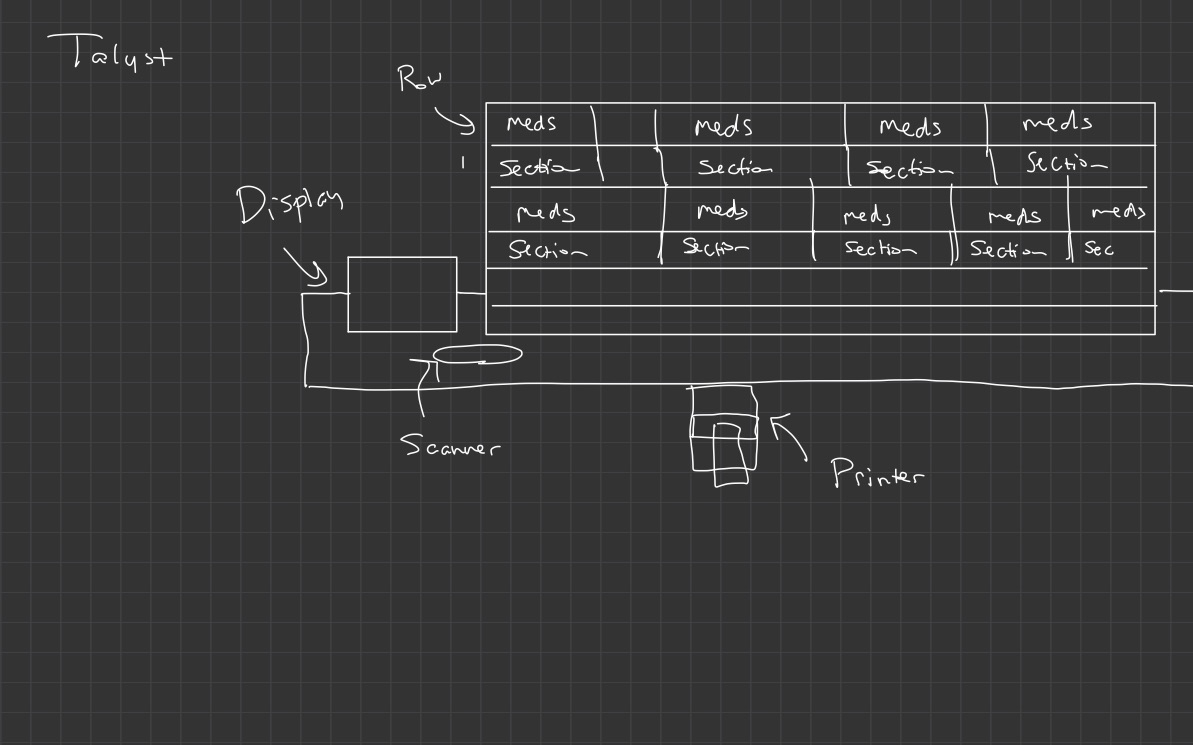 Talyst
Row
meds meds meds meds
1
Section Section Section Section
Display
meds meds meds meds meds
Section Section Section Section Sec
Scanner
Printer